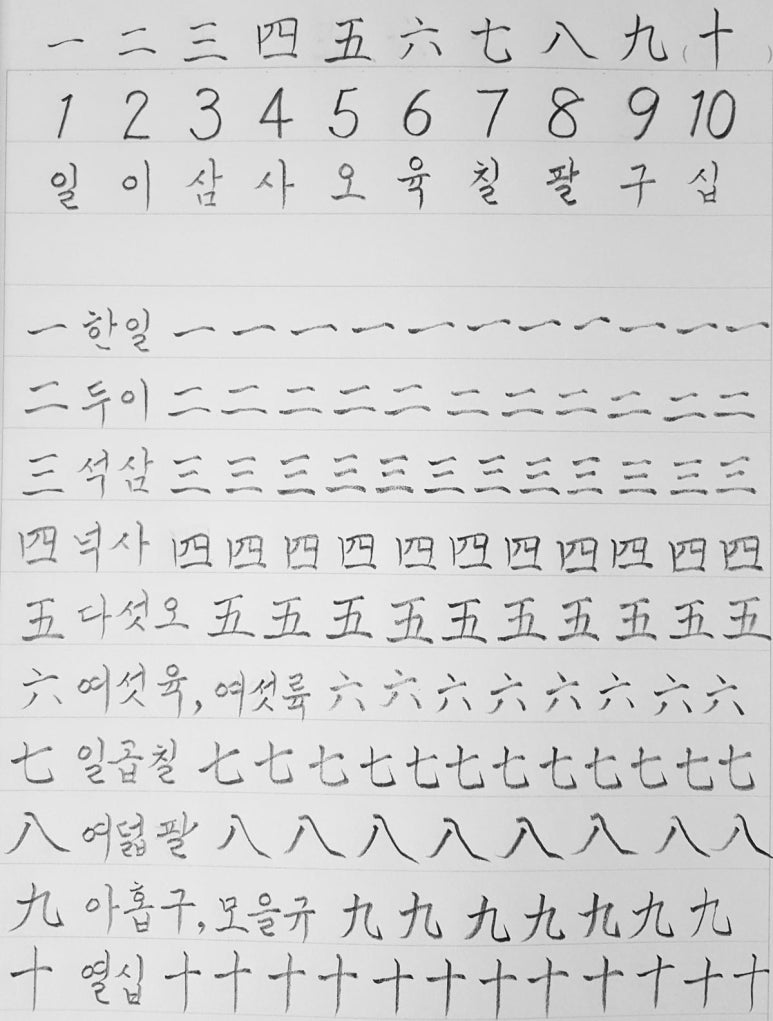 一 二 三 四 五 六 七 八 九 ( 十 )
1 2 3 4 5 6 7 8 9 10
일 이 삼 사 오 육 칠 팔 구 십
一 한일 一 一 一 一 一 一 一 一 一 一 一
二 두이 二 二 二 二 二 二 二 二 二 二 二
三 석삼 三 三 三 三 三 三 三 三 三 三 三
四 넉사 四 四 四 四 四 四 四 四 四 四 四
五 다섯오 五 五 五 五 五 五 五 五 五 五
六 여섯육, 여섯륙 六 六 六 六 六 六 六 六
七 일곱칠 七 七 七 七 七 七 七 七 七 七 七
八 여덟팔 八 八 八 八 八 八 八 八
九 아홉구, 모을규 九 九 九 九 九 九 九
十 열십 十 十 十 十 十 十 十 十 十 十 十 十